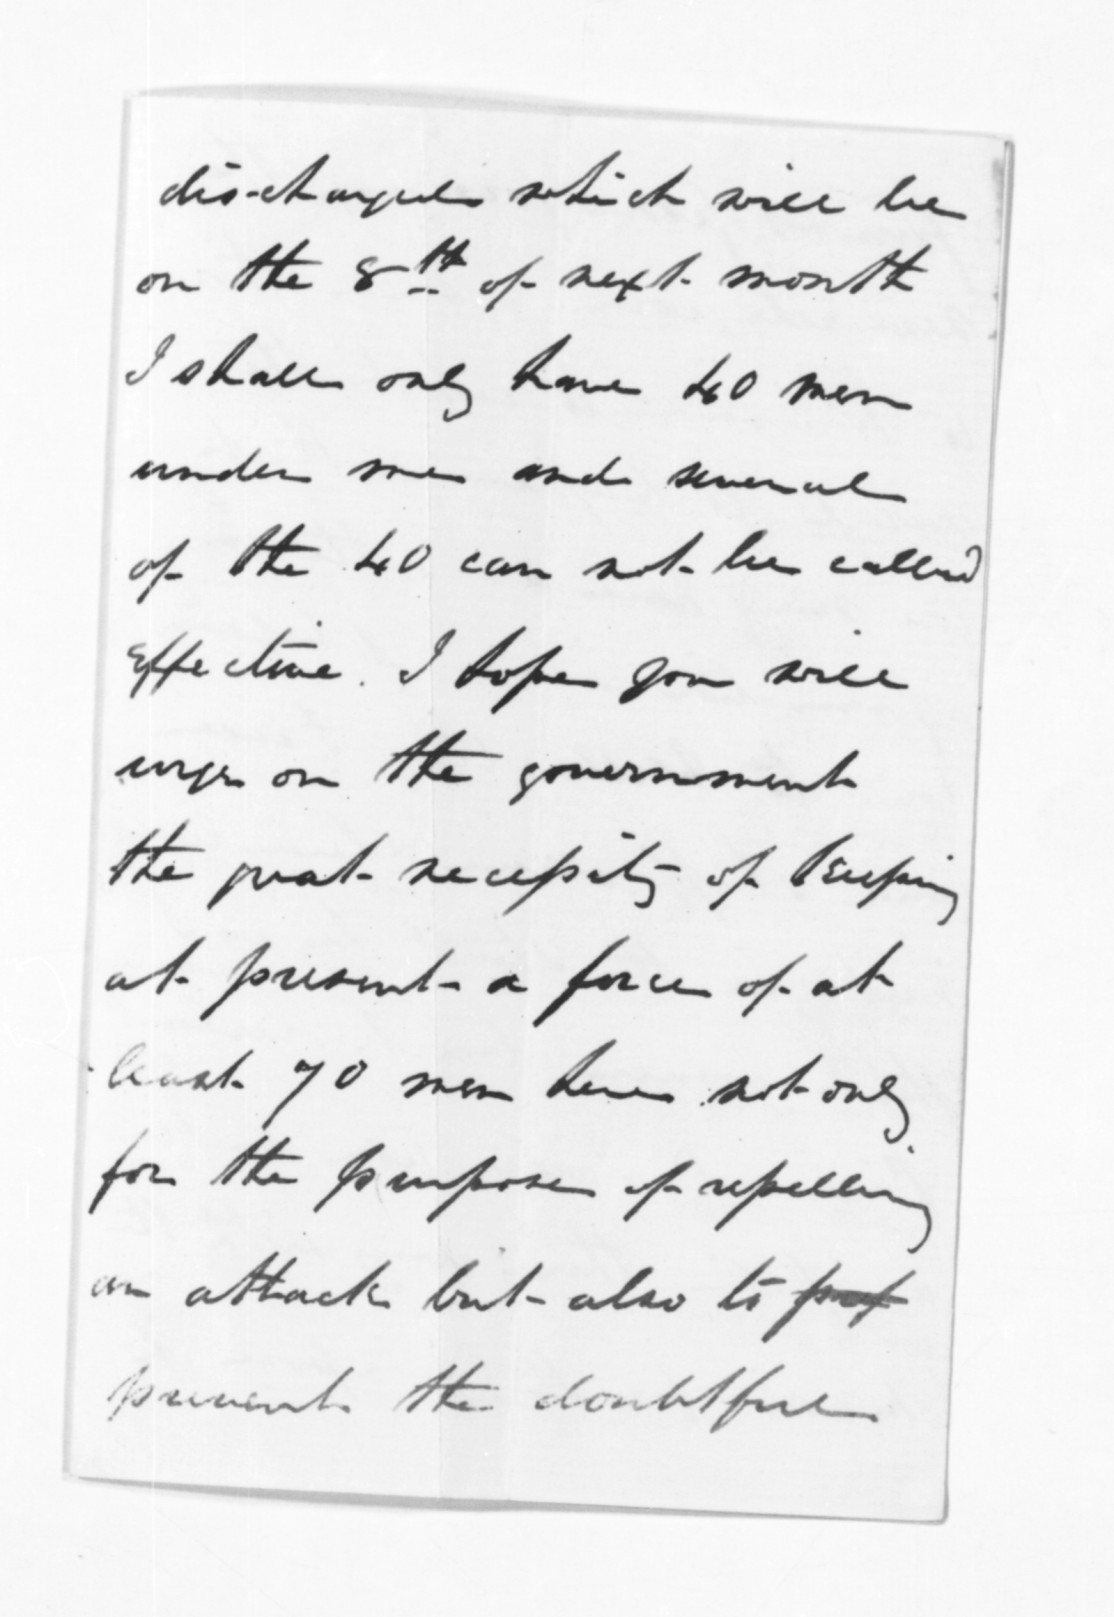 discharged which will be
on the 8th of next month
I shall only have 40 men
under me and several
of the 40 can not be called
effective. I hope you will
urge on the government
the great necessity of keeping
at present a force of at
least 70 men here not only
for the purpose of repelling
an attack but also to
prevent the doubtful